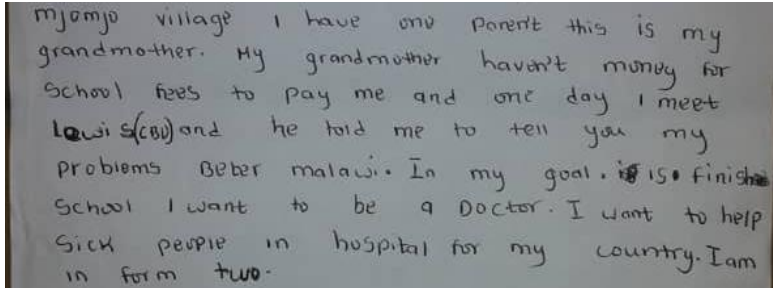 mjomjo village I have one parent this is my
grandmother. My grandmother haven't money for
School fees to pay me and one day I meet
Lewis (CBO) and he told me to tell you my
problems Beter malawi. In my goal. is. finish
School I want to be a Doctor. I want to help
Sick people in hospital for my country. I am
in form two.